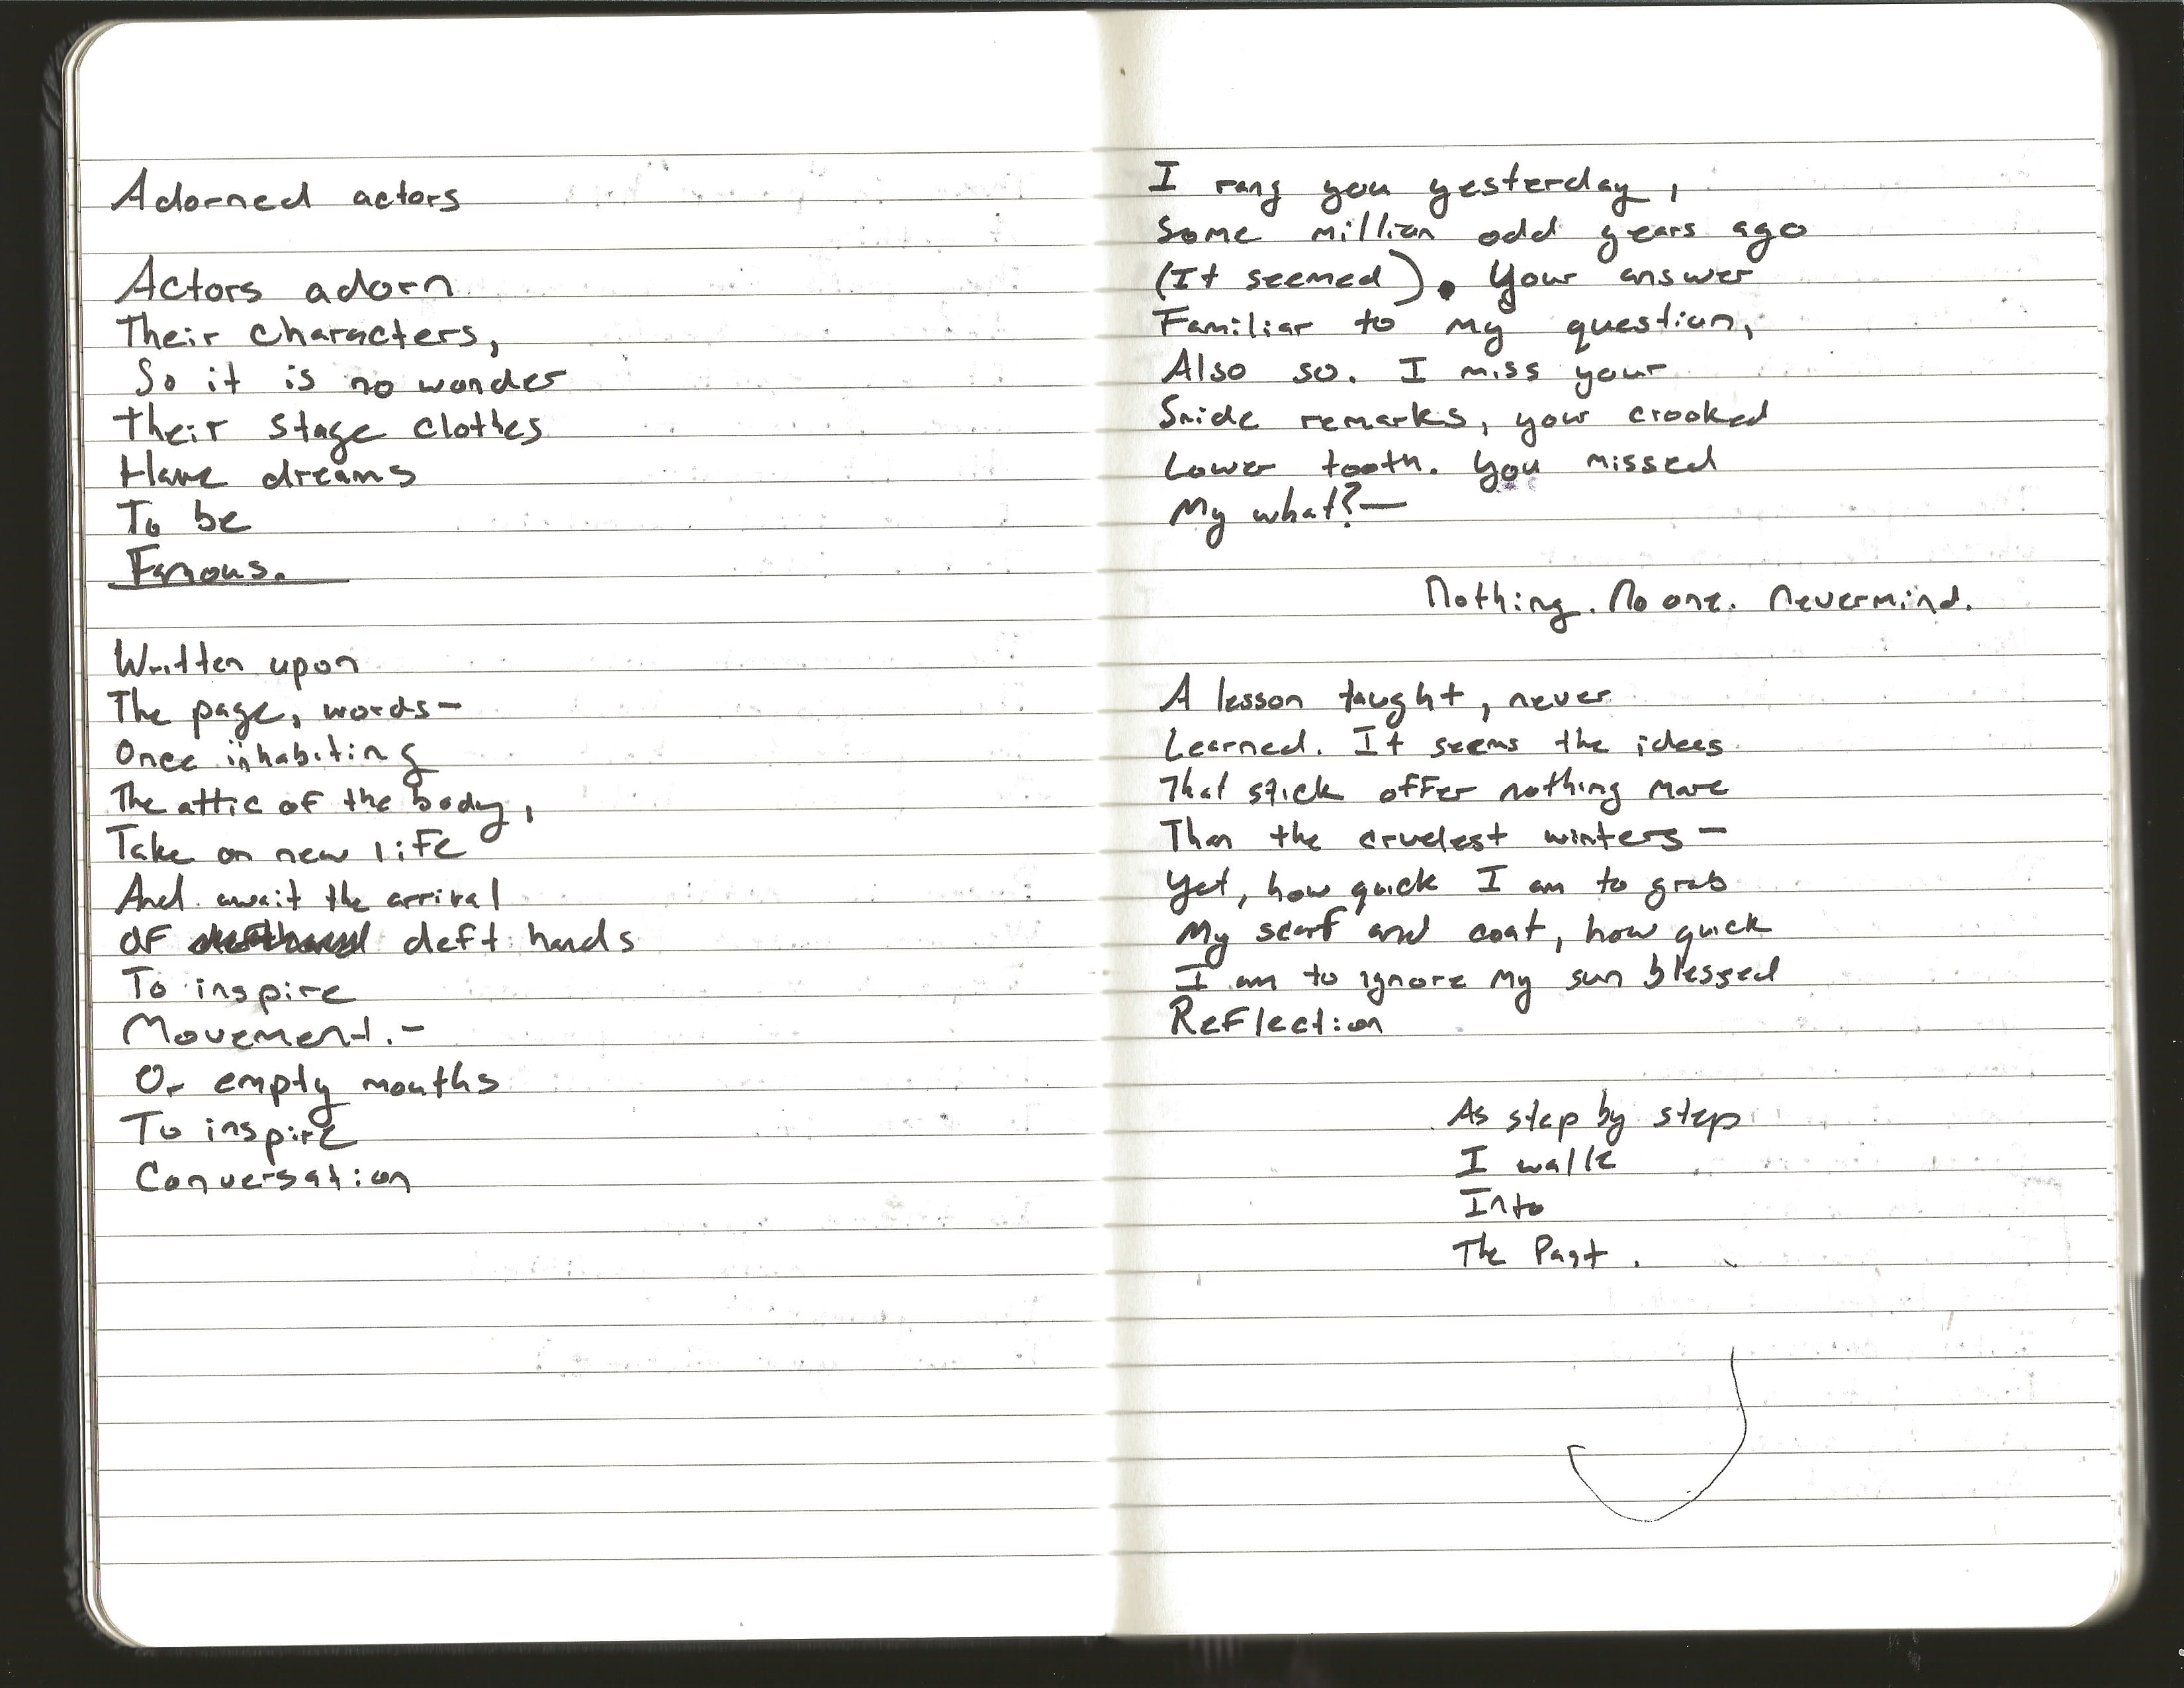 Adorned actors
Actors adorn
Their characters,
So it is no wonder
Their stage clothes
Have dreams
To be
Famous.
Written upon
The page, words—
Once inhabiting
The attic of the body,
Take on new life
And await the arrival
Of deft hands
To inspire
Movement.—
Or empty mouths
To inspire
Conversation
I rang you yesterday,
Some million odd years ago
(It seemed). Your answer
Familiar to my question,
Also so. I miss your
Snide remarks, your crooked
Lower tooth. You missed
My what?—
Nothing. No one. Nevermind.
A lesson taught, never
Learned. It seems the ideas
That stick offer nothing more
Than the cruelest winters—
Yet, how quick I am to grab
My scarf and coat, how quick
I am to ignore my sun blessed
Reflection
As step by step
I walk
Into
The Past.